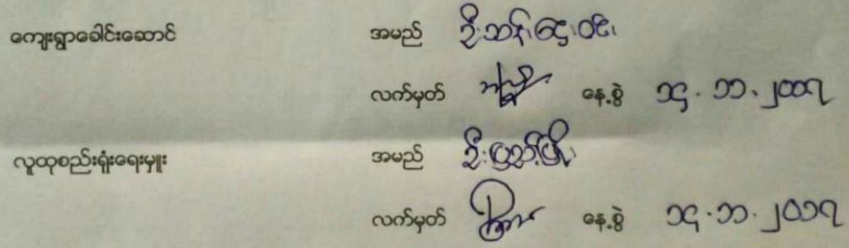 ကျေးရွာခေါင်းဆောင် အမည် ဦးသန်းဌေးဝင်း
လက်မှတ် နေ့စွဲ ၁၄.၁၁.၂၀၁၇
လူထုစည်းရုံးရေးမှူး အမည် ဦး
လက်မှတ် နေ့စွဲ ၁၄.၁၁.၂၀၁၇